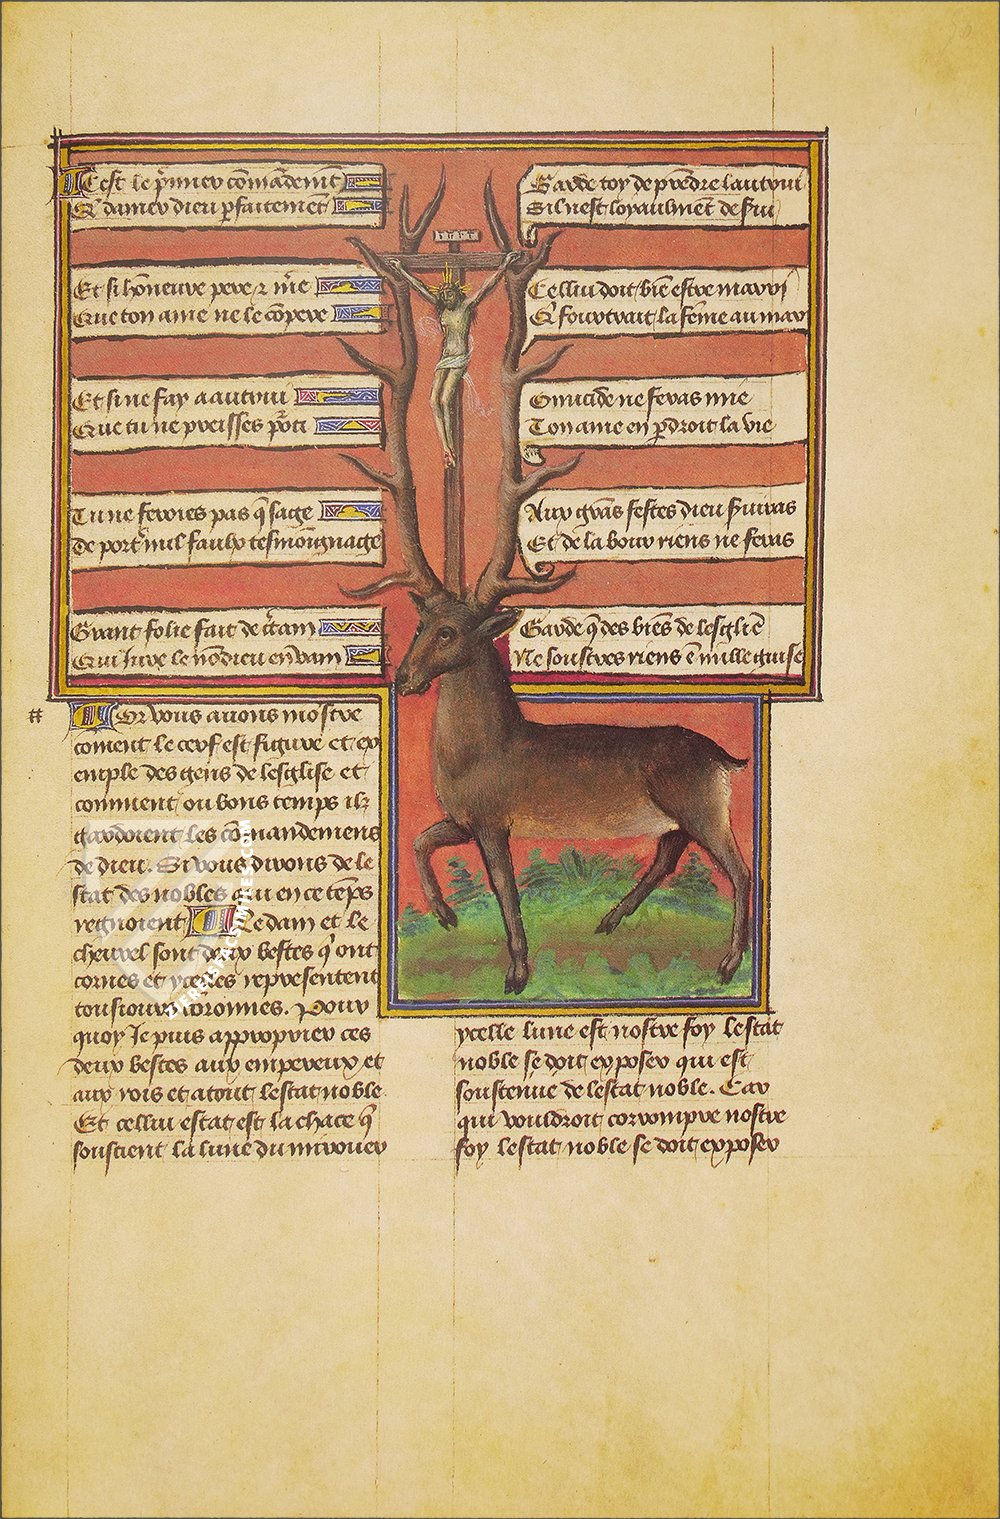 C'est le p̄mier cōmādemt̄
Q̄ damer dieu p̄faitemēt
Et si hōneure pere ⁊ m̄e
Que ton ame ne le cōpere
Et si ne fay a autrui
Que tu ne preisses pō̄ ti
Tu ne feroies pas q̄ sage
De port̄ nul faulx tesmoingnage
Grant folie fait de c̄tain
Qui Jure le nō dieu en vain
Garde toy de prēdre lautrui
Sil nest loyaulmēt de lui
Celluy doit biē estre marri
Q̄ fourtrait la fēme au mari
Omicide ne feras mie
Ton ame en p̄droit la vie
Aux grās festes dieu suiuras
Et de labour riens ne feras
Garde q̄ des biēs de lesgliē
Ne soustres riens ē nulle guise
Or vous auons mōstre
coment le cerf est figure et ex
emple des gens de lesglise et
comment ou bons temps ilz
gardoient les cōmandemens
de dieu. Si vous dirons de le
stat des nobles qui en ce tēps
regnoient Le dam et le
cheurel sont deux bestes q̄ ont
cornes et ycelles representent
tousiours coronnes. Pour
quoy Je puis approprier ces
deux bestes aux empereux et
aux rois et atout lestat noble
Et cellui estat est la chace q̄
soustient la lune du mirouer
ycelle lune est nostre foy lestat
noble se doit exposer qui est
soustenue de lestat noble. Car
qui vouldroit corrompre nostre
foy lestat noble se doit exposer